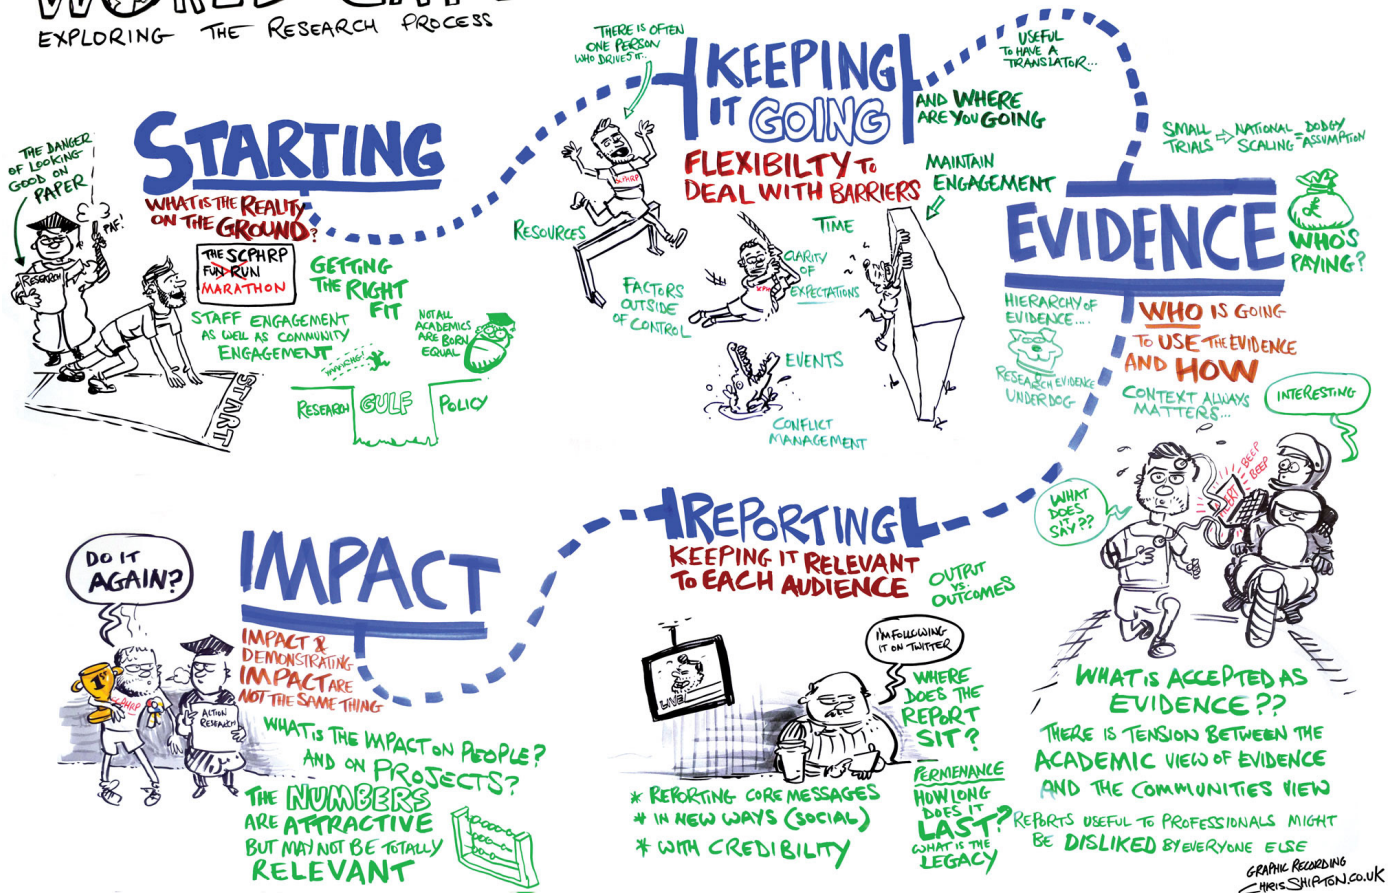 WORLD CAFE
EXPLORING THE RESEARCH PROCESS
STARTING
THE DANGER
OF LOOKING
GOOD ON
PAPER
PAF!
RESEARCH
WHAT IS THE REALITY
ON THE GROUND?
THE SCPHRP
FUN RUN
MARATHON
GETTING
THE RIGHT
FIT
STAFF ENGAGEMENT
AS WELL AS COMMUNITY
ENGAGEMENT
NOT ALL
ACADEMICS
ARE BORN
EQUAL
RESEARCH
GULF
POLICY
START
THERE IS OFTEN
ONE PERSON
WHO DRIVES IT..
KEEPING
IT GOING
AND WHERE
ARE YOU GOING
FLEXIBILTY TO
DEAL WITH BARRIERS
MAINTAIN
ENGAGEMENT
SCPHRP
RESOURCES
TIME
CLARITY
OF
EXPECTATIONS
FACTORS
OUTSIDE
OF CONTROL
EVENTS
CONFLICT
MANAGEMENT
USEFUL
TO HAVE A
TRANSLATOR...
SMALL
TRIALS
NATIONAL
SCALING
= DODGY
ASSUMPTION
EVIDENCE
£
WHO'S
PAYING?
HIERARCHY OF
EVIDENCE....
RESEARCH EVIDENCE
UNDERDOG
WHO IS GOING
TO USE THE EVIDENCE
AND HOW
CONTEXT ALWAYS
MATTERS...
INTERESTING
BEEP
BEEP
ALERT
WHAT
DOES
IT
SAY??
WHAT IS ACCEPTED AS
EVIDENCE??
THERE IS TENSION BETWEEN THE
ACADEMIC VIEW OF EVIDENCE
AND THE COMMUNITIES VIEW
REPORTS USEFUL TO PROFESSIONALS MIGHT
BE DISLIKED BY EVERYONE ELSE
REPORTING
KEEPING IT RELEVANT
TO EACH AUDIENCE
OUTPUT
VS.
OUTCOMES
I'M FOLLOWING
IT ON TWITTER
LIVE!
WHERE
DOES THE
REPORT
SIT?
PERMENANCE
HOW LONG
DOES IT
LAST?
WHAT IS THE
LEGACY
* REPORTING CORE MESSAGES
* IN NEW WAYS (SOCIAL)
* WITH CREDIBILITY
IMPACT
DO IT
AGAIN?
1st
SCPHRP
ACTION
RESEARCH
IMPACT &
DEMONSTRATING
IMPACT ARE
NOT THE SAME THING
WHAT IS THE IMPACT ON PEOPLE?
AND ON PROJECTS?
THE NUMBERS
ARE ATTRACTIVE
BUT MAY NOT BE TOTALLY
RELEVANT
GRAPHIC RECORDING
CHRISSHIPTON.CO.UK